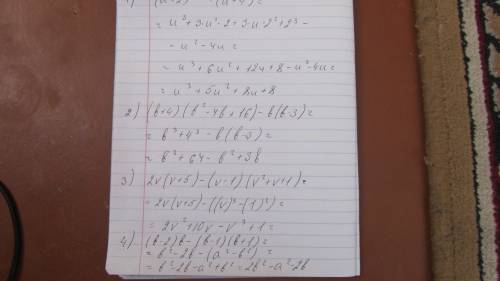 = u³+3·u²·2+3·u·2²+2³-
-u²-4u=
= u³+6u²+12u+8-u²-4u=
= u³+5u²+8u+8
2) (b+4)(b²-4b+16)-b(b-3)=
= b³+4³-b(b-3)=
= b³+64-b²+3b
3) 2v(v+5)-(v-1)(v²+v+1)=
= 2v(v+5)-((v)³-(1)³)=
= 2v²+10v-v³+1=
4) (b-2)b-(b-1)(b+1)=
= b²-2b-(a²-b²)=
= b²-2b-a²+b²=2b²-a²-2b